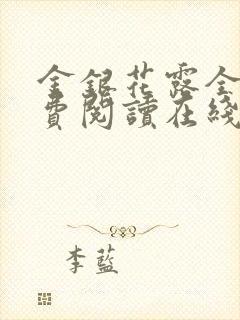 金銀花露全
費閱讀在綫
李藍